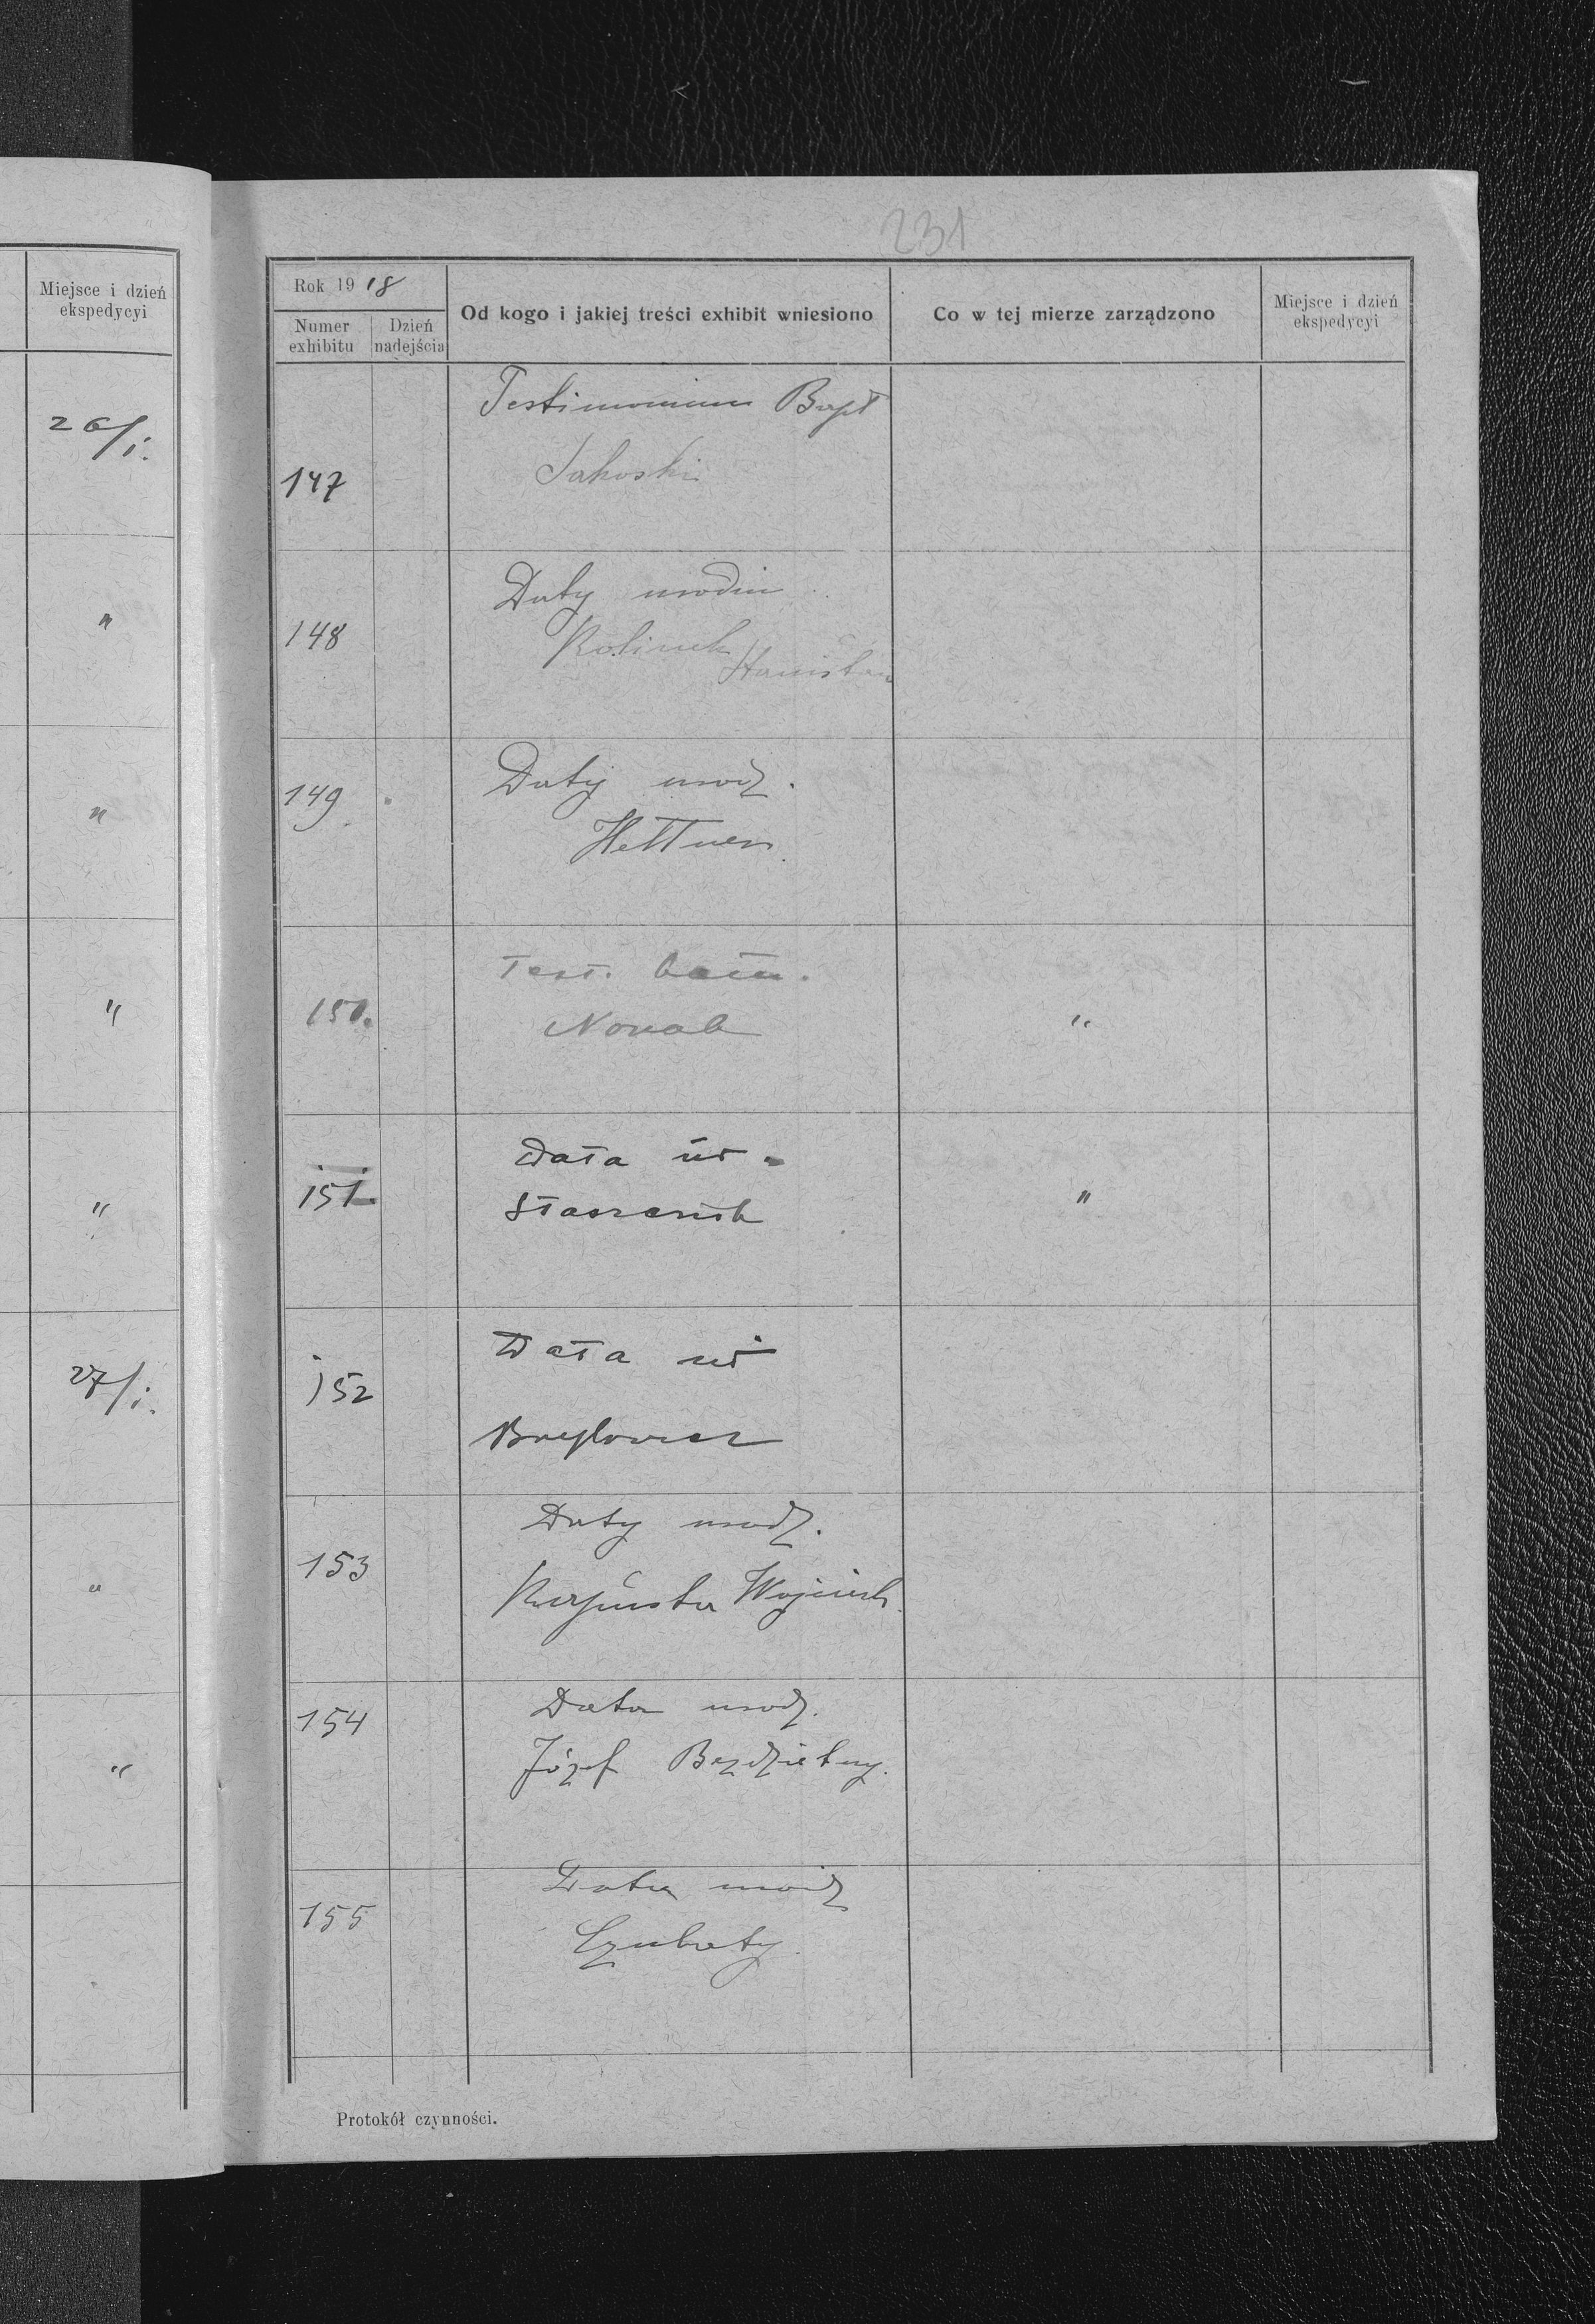 Miejsce i dzień
ekspedycyi
26/1.
"
"
"
"
27/1.
"
"
231
Rok 1918
Numer
exhibitu
Dzień
nadejścia
Od kogo i jakiej treści exhibit wniesiono
Co w tej mierze zarządzono
Miejsce i dzień
ekspedycyi
Testimonium Bapt
147
Daty urodzin
148
Stanisław
Daty urodz.
149 "
Hettner
Test.
150.
Nowak "
Data ur.
151. "
Staszczuk
Data ur
152
Daty urodz.
153
Wojciech
Data urodz.
154
Józef Bezdzietny.
Data urodz
155
Czubaty.
Protokół czynności.